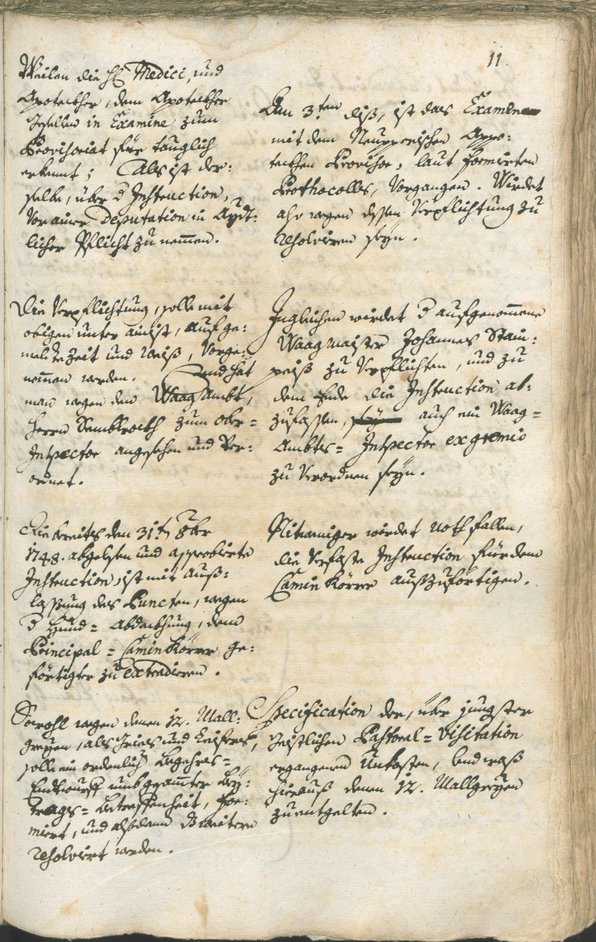 11.
Weilen die H. Medici, und
Apoteckher, dem Apoteckher
Gesellen in Examine zum
Provisoriat für tauglich
erkennt; Als ist der-
selbe, über d Instruction,
Vor ainer Deputation in Aydt-
licher Pflicht zu nemmen.
Den 3.ten diß, ist das Examen
mit dem Neuen Appo-
teckhen Provisor, laut formirten
Prothocolls, Vorgangen. Wirdet
also wegen dessen Verpflichtung zu
resolviren seyn.
Die Verpflichtung, solle mit
obigen unter ainist, auf ge-
melte Zeit und weiß, Vorge-
nommen werden. Und hat
man wegen dem Waag Ambt,
Herrn zum ober-
Inspector angesehen und Ver-
ordnet.
Ingleichen wirdet d aufgenommene
Waagmaister Johannes Stain-
weiß zu Verpflichten, und zu
dem Ende die Instruction ab-
zufassen, auch ein Waag-
Ambts-Inspector ex gremio
zu Verordnen seyn.
Die bereits den 31t 8br
1748. abgelesen und approbirte
Instruction, ist mit auß-
lassung des Puncten, wegen
d Hund-Abdeckhung, dem
Principal-Camin Körrer ge-
förtigter zu extradieren.
Nitweniger wirdet noth fallen,
die Verfaste Instruction für dem
Camin Körrer außzuförtigen.
Sowohl wegen denen 12. Mall-
greyen, als Gries und
solle ein ordenlich
Entwurff umb
Betreffenheit, for-
mirt, und alßdann d weitere
resolvirt werden.
Specification der, über jüngster
Geistlichen Pastoral-Visitation
ergangenen Unkosten, und waß
hierauß denen 12. Mallgreyen
zu entgelten.